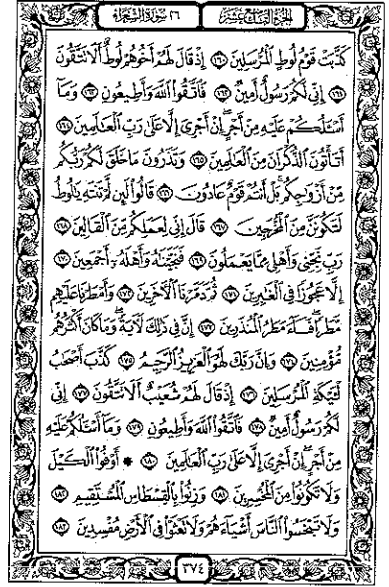 الجُزْءُ التَّاسِعَ عَشَرَ ٢٦ سُورَةُ الشُّعَرَاءِ
كَذَّبَتْ قَوْمُ لُوطٍ ٱلْمُرْسَلِينَ ١٦٠ إِذْ قَالَ لَهُمْ أَخُوهُمْ لُوطٌ أَلَا تَتَّقُونَ
١٦١ إِنِّي لَكُمْ رَسُولٌ أَمِينٌ ١٦٢ فَٱتَّقُوا۟ ٱللَّهَ وَأَطِيعُونِ ١٦٣ وَمَآ
أَسْـَٔلُكُمْ عَلَيْهِ مِنْ أَجْرٍ إِنْ أَجْرِىَ إِلَّا عَلَىٰ رَبِّ ٱلْعَـٰلَمِينَ ١٦٤
أَتَأْتُونَ ٱلذُّكْرَانَ مِنَ ٱلْعَـٰلَمِينَ ١٦٥ وَتَذَرُونَ مَا خَلَقَ لَكُمْ رَبُّكُم
مِّنْ أَزْوَٰجِكُم بَلْ أَنتُمْ قَوْمٌ عَادُونَ ١٦٦ قَالُوا۟ لَئِن لَّمْ تَنتَهِ يَـٰلُوطُ
لَتَكُونَنَّ مِنَ ٱلْمُخْرَجِينَ ١٦٧ قَالَ إِنِّى لِعَمَلِكُم مِّنَ ٱلْقَالِينَ ١٦٨
رَبِّ نَجِّنِى وَأَهْلِى مِمَّا يَعْمَلُونَ ١٦٩ فَنَجَّيْنَـٰهُ وَأَهْلَهُۥٓ أَجْمَعِينَ ١٧٠
إِلَّا عَجُوزًا فِى ٱلْغَـٰبِرِينَ ١٧١ ثُمَّ دَمَّرْنَا ٱلْـَٔاخَرِينَ ١٧٢ وَأَمْطَرْنَا عَلَيْهِم
مَّطَرًا فَسَآءَ مَطَرُ ٱلْمُنذَرِينَ ١٧٣ إِنَّ فِى ذَٰلِكَ لَـَٔايَةً وَمَا كَانَ أَكْثَرُهُم
مُّؤْمِنِينَ ١٧٤ وَإِنَّ رَبَّكَ لَهُوَ ٱلْعَزِيزُ ٱلرَّحِيمُ ١٧٥ كَذَّبَ أَصْحَـٰبُ
لْـَٔيْكَةِ ٱلْمُرْسَلِينَ ١٧٦ إِذْ قَالَ لَهُمْ شُعَيْبٌ أَلَا تَتَّقُونَ ١٧٧ إِنِّى
لَكُمْ رَسُولٌ أَمِينٌ ١٧٨ فَٱتَّقُوا۟ ٱللَّهَ وَأَطِيعُونِ ١٧٩ وَمَآ أَسْـَٔلُكُمْ عَلَيْهِ
مِنْ أَجْرٍ إِنْ أَجْرِىَ إِلَّا عَلَىٰ رَبِّ ٱلْعَـٰلَمِينَ ١٨٠ * أَوْفُوا۟ ٱلْكَيْلَ
وَلَا تَكُونُوا۟ مِنَ ٱلْمُخْسِرِينَ ١٨١ وَزِنُوا۟ بِٱلْقِسْطَاسِ ٱلْمُسْتَقِيمِ ١٨٢
وَلَا تَبْخَسُوا۟ ٱلنَّاسَ أَشْيَآءَهُمْ وَلَا تَعْثَوْا۟ فِى ٱلْأَرْضِ مُفْسِدِينَ ١٨٣
٣٧٤